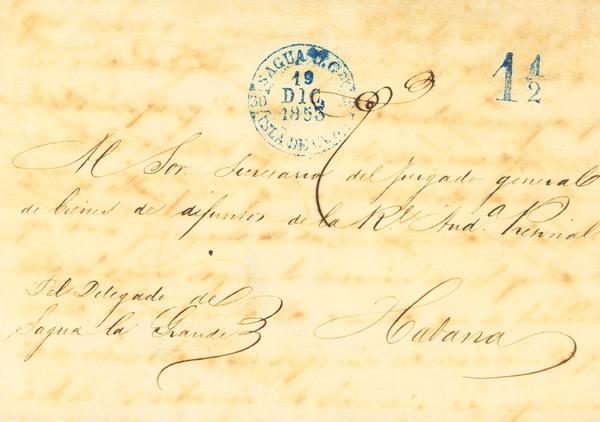 SAGUA L. G.
19
DIC
1853
ISLA DE CUBA
1 1/2
Al Sor. Secretario del juzgado general
de bienes de difuntos de la Rl. Auda. Pretorial
Del Delegado de
Sagua la Grande
Habana